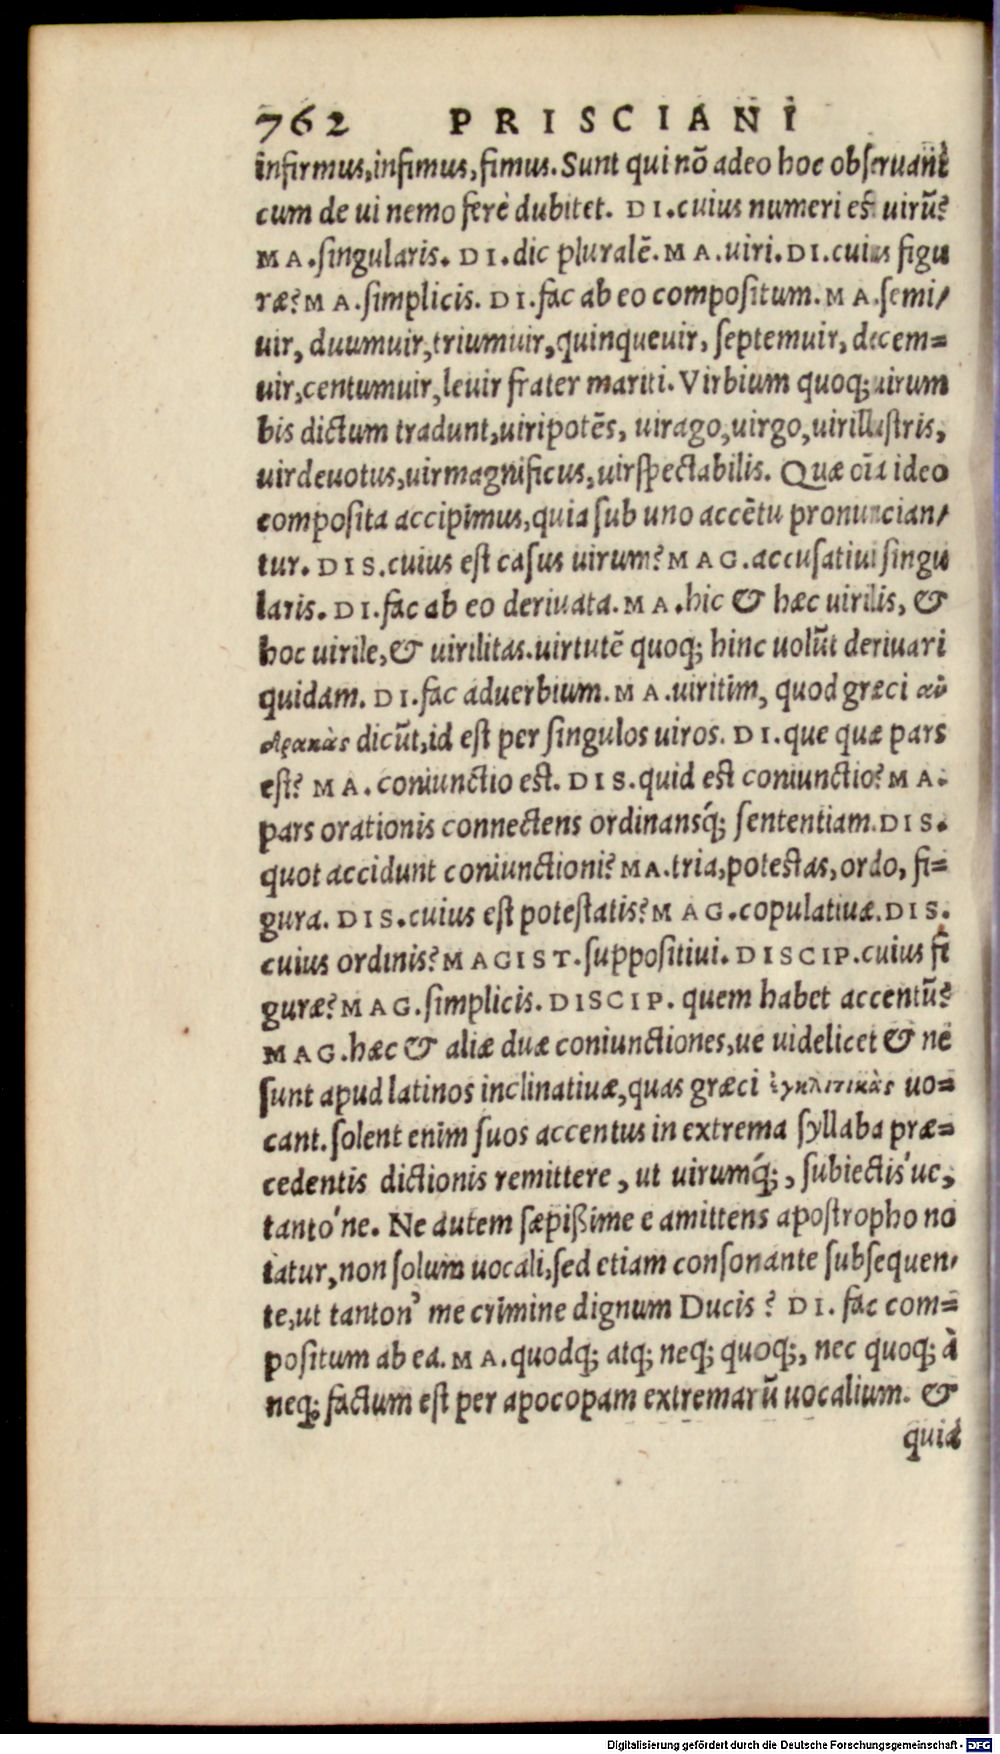 762 PRISCIANI
infirmus,infimus,fimus.Sunt qui nō adeo hoc obseruant
cum de ui nemo ferè dubitet. DI.cuius numeri est uirū?
MA.singularis. DI.dic pluralē.MA.uiri.DI.cuius figu
ræ?MA.simplicis. DI.fac ab eo compositum.MA.semi/
uir, duumuir,triumuir,quinqueuir, septemuir, decem=
uir,centumuir,leuir frater mariti.Virbium quoq; uirum
bis dictum tradunt,uiripotēs, uirago,uirgo,uirillustris,
uirdeuotus,uirmagnificus,uirspectabilis. Quæ oīa ideo
composita accipimus,quia sub uno accētu pronuncian/
tur. DIS.cuius est casus uirum?MAG.accusatiui singu
laris. DI.fac ab eo deriuata.MA.hic & hæc uirilis, &
hoc uirile,& uirilitas.uirtutē quoq; hinc uolūt deriuari
quidam. DI.fac aduerbium.MA.uiritim, quod græci ἀν
δρακὰς dicūt,id est per singulos uiros. DI.que quæ pars
est? MA.coniunctio est. DIS.quid est coniunctio?MA.
pars orationis connectens ordinansq́; sententiam.DIS.
quot accidunt coniunctioni?MA.tria,potestas,ordo, fi=
gura. DIS.cuius est potestatis?MAG.copulatiuæ.DIS.
cuius ordinis?MAGIST.suppositiui. DISCIP.cuius fi
guræ?MAG.simplicis. DISCIP. quem habet accentū?
MAG.hæc & aliæ duæ coniunctiones,ue uidelicet & ne
sunt apud latinos inclinatiuæ,quas græci ἐγκλιτικὰς uo=
cant.solent enim suos accentus in extrema syllaba præ=
cedentis dictionis remittere, ut uirumq́;, subiectis'ue,
tanto'ne. Ne autem sæpißime e amittens apostropho no
tatur,non solum uocali,sed etiam consonante subsequen/
te,ut tanton' me crimine dignum Ducis? DI. fac com=
positum ab ea.MA.quodq; atq; neq; quoq;, nec quoq; à
neq; factum est per apocopam extremarū uocalium. &
quid
Digitalisierung gefördert durch die Deutsche Forschungsgemeinschaft - DFG